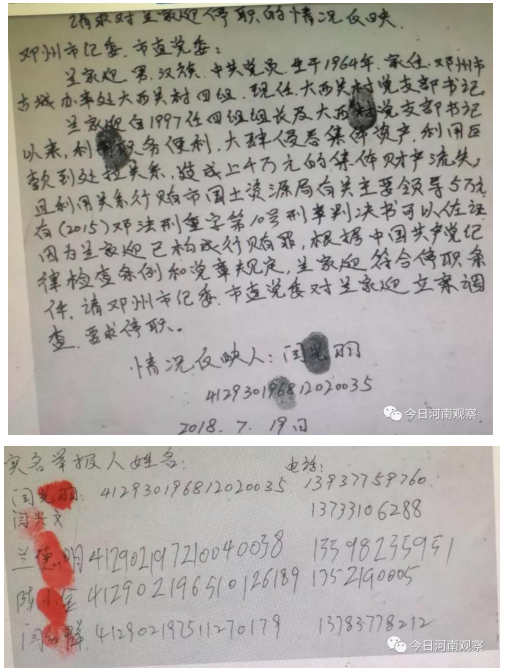 请求对兰家迎停职的情况反映
邓州市纪委、市直党委:
兰家迎 男、汉族、中共党员、生于1964年、家住:邓州市
古城办事处大西关村四组、现任大西关村党支部书记
兰家迎自1997任四组组长及大西关村党支部书记
以来,利用职务便利,大肆侵吞集体资产,利用巨
款到处拉关系,造成上千万元的集体财产流失,
且利用关系行贿市国土资源局有关主要领导5万元
在(2015)邓法刑重字第10号刑事判决书可以佐证
因为兰家迎已构成行贿罪,根据中国共产党纪
律检查条例和党章规定,兰家迎符合停职条
件,请邓州市纪委、市直党委对兰家迎立案调
查,要求停职。
情况反映人:闫光羽
412930196812020035
2018.7.19日
今日河南观察
实名举报人姓名: 电话:
闫光羽: 412930196812020035 13937759760
闫兴文 13733106288
兰 明 412902197210040038 13598235951
陈小全 412902196510126189 1352190005
闫 群 412902197511270179 13783778212
今日河南观察